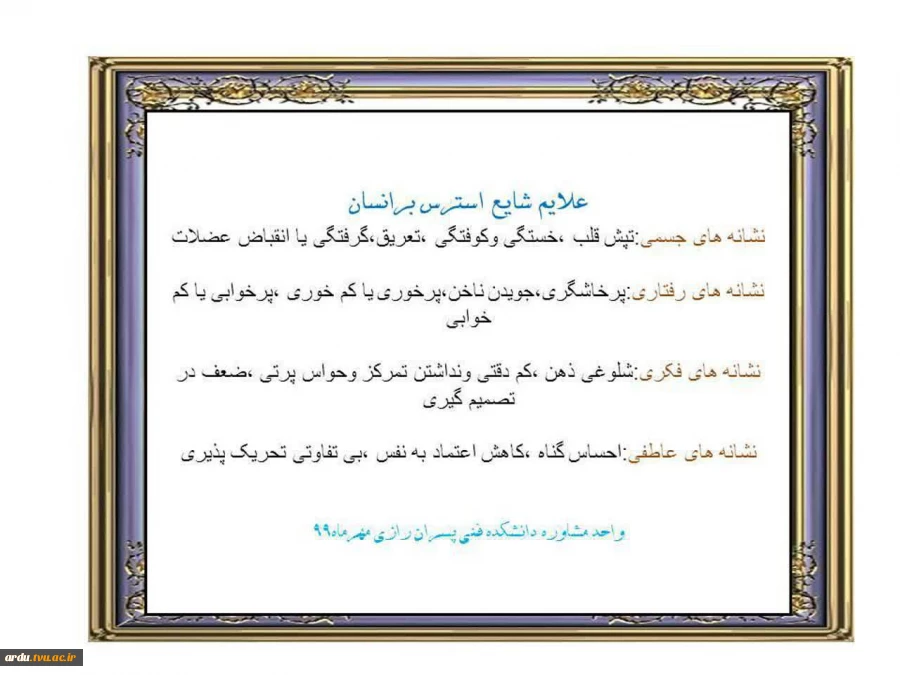 علایم شایع استرس برانسان
نشانه های جسمی:تپش قلب ،خستگی وکوفتگی ،تعریق،گرفتگی یا انقباض عضلات
نشانه های رفتاری:پرخاشگری،جویدن ناخن،پرخوری یا کم خوری ،پرخوابی یا کم
خوابی
نشانه های فکری:شلوغی ذهن ،کم دقتی ونداشتن تمرکز وحواس پرتی ،ضعف در
تصمیم گیری
نشانه های عاطفی:احساس گناه ،کاهش اعتماد به نفس ،بی تفاوتی تحریک پذیری
واحد مشاوره دانشکده فنی پسران رازی مهرماه۹۹
ardu.tvu.ac.ir